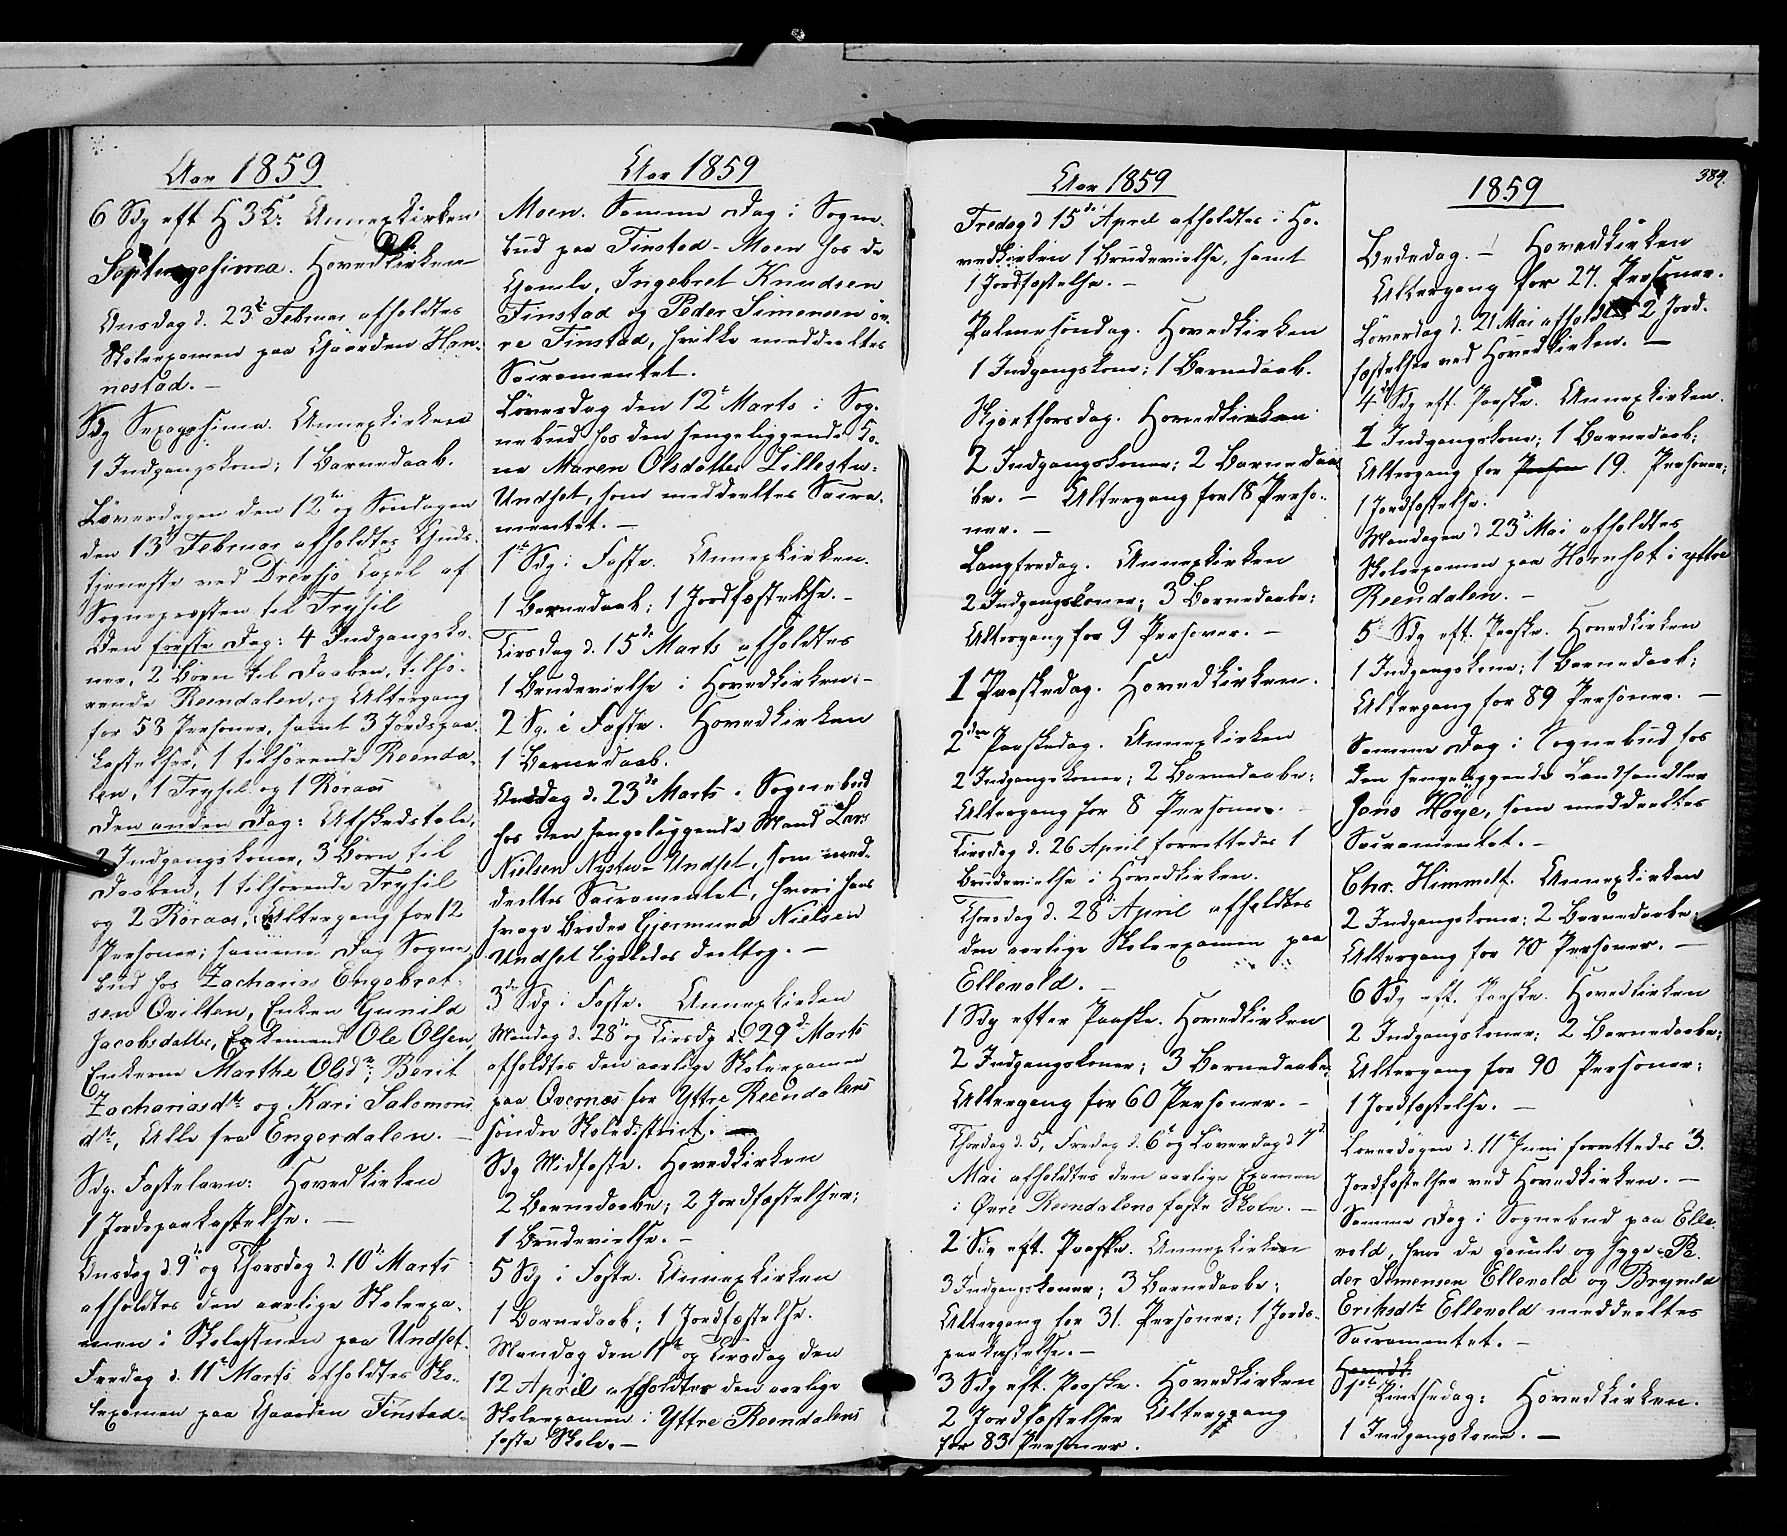 Aar 1859
6 Sdg eft H 3 K: Annexkirken
Septuagesima. Hovedkirken
Onsdag d. 23de Februar afholdtes
Skoleexamen paa Gaarden Han-
nestad. –
Sdg Sexagesima. Annexkirken
1 Indgangskone; 1 Barnedaab.
Løverdagen den 12te og Søndagen
den 13de Februar afholdtes Guds-
tjeneste ved Drevsjø Capel af
Sognepræsten til Trysil
Den første Dag: 4 Indgangsko-
ner, 2 Børn til Daaben, tilhø-
rende Reendalen, og Altergang
for 58 Personer, samt 3 Jordspaa-
kastelser, 1 tilhørende Reenda-
len, 1 Trysil og 1 Røraas
Den anden Dag: Afskedstale,
2 Indgangskoner, 3 Børn til
Daaben, 1 tilhørende Trysil
og 2 Røraas; Altergang for 12
Personer; samme Dag Sogne-
bud hos Zacharias Engebret-
sen Qvilten, Enken Gunild
Jacobsdatter, Enkemand Ole Olsen,
Enkerne Marthe Olsdtr, Berit
Zachariasdtr og Kari Salomons
dtr, Alle fra Engerdalen. –
Sdg. Fastelavn: Hovedkirken
1 Jordspaakastelse. –
Onsdag d. 9de og Thorsdag d. 10de Marts
afholdtes den aarlige Skoleexa-
men i Skolestuen paa Undset.
Fredag d. 11te Marts afholdtes Sko-
leexamen paa Gaarden Finstad-
Aar 1859
Moen. Samme Dag i Sogne-
bud paa Finstad-Moen hos de
Gamle, Ingebret Knudsen
Finstad og Peder Simensen øv-
re Finstad, hvilke meddeeltes
Sacramentet.
Løverdag den 12te Marts i Sog-
nebud hos den sengeliggende Ko-
ne Maren Olsdatter Lillestu-
Undset, som meddeeltes Sacra-
mentet. –
1ste Sdg i Faste. Annexkirken.
1 Barnedaab; 1 Jordfæstelse. –
Tirsdag d. 15de Marts afholdtes
1 Brudevielse i Hovedkirken. –
2 Sg. i Faste. Hovedkirken
1 Barnedaab.
Onsdag d. 23de Marts i Sognebud
hos den sengeliggende Mand Lars
Nielsen Nystu-Undset, som med-
deeltes Sacramentet, hvori hans
svage Broder Gjermund Nielsen
Undset ligeledes deeltog. –
3die Sdg i Faste. Annexkirken
Mandag d. 28de og Tirsdg d. 29de Marts
afholdtes den aarlige Skoleexamen
paa Qvernæs for Yttre Reendalens
søndre Skoledistrict. –
Sdg Midfaste. Hovedkirken
2 Barnedaabe; 2 Jordfæstelser;
1 Brudevielse. –
5 Sdg i Faste. Annexkirken
1 Barnedaab; 1 Jordfæstelse.
Mandag den 11te og Tirsdag den
12 April afholdtes den aarlige
Skoleexamen i Yttre Reendalens
faste Skole. –
Aar 1859
Fredag d 15de April afholdtes i Ho-
vedkirken 1 Brudevielse, samt
1 Jordfæstelse. –
Palmesøndag. Hovedkirken
1 Indgangskone; 1 Barnedaab.
Skjærthorsdag. Hovedkirken
2 Indgangskoner; 2 Barnedaa-
be. – Altergang for 18 Perso-
ner. –
Langfredag. Annexkirken
2 Indgangskoner; 3 Barnedaabe;
Altergang for 9 Personer. –
1 Paaskedag. Hovedkirken.
2den Paaskedag. Annexkirken
2 Indgangskoner; 2 Barnedaabe;
Altergang for 8 Personer.
Tirsdag d. 26 April forrettedes 1
Brudevielse i Hovedkirken.
Thorsdag d. 28de April afholdtes
den aarlige Skoleexamen paa
Ellevold. –
1 Sdg efter Paaske. Hovedkirken
2 Indgangskoner; 3 Barnedaabe;
Altergang for 60 Personer. –
Thorsdag d. 5, Fredag d. 6te og Løverdag d 7de
Mai afholdtes den aarlige Examen
i Øvre Reendalens faste Skole. –
2 Sdg eft. Paaske. Annexkirken
3 Indgangskoner; 3 Barnedaabe;
Altergang for 31. Personer; 1 Jords-
paakastelse. –
3 Sdg eft. Paaske. Hovedkirken
2 Jordfæstelser Altergang
for 83 Personer.
389.
1859
Bededag. – Hovedkirken
Altergang for 27. Personer.
Løverdag d. 21 Mai afholdtes 2 Jord-
fæstelser ved Hovedkirken. –
4de Sdg eft. Paaske. Annexkirken.
1 Indgangskone; 1 Barnedaab;
Altergang for Person 19. Personer;
1 Jordfæstelse.
Mandagen d 23de Mai afholdtes
Skoleexamen paa Hornset i yttre
Reendalen. –
5 Sdg eft. Paaske. Hovedkirken
1 Indgangskone; 1 Barnedaab;
Altergang for 89 Personer. –
Samme Dag i Sognebud hos
den sengeliggende Landhandler
Jens Høye, som meddeeltes
Sacramentet. –
Chr. Himmelf. Annexkirken
2 Indgangskoner; 2 Barnedaabe;
Altergang for 70 Personer. –
6 Sdg eft. Paaske. Hovedkirken
2 Indgangskoner; 2 Barnedaabe;
Altergang for 90 Personer;
1 Jordfæstelse. –
Løverdagen d. 11te Juni forrettedes 3.
Jordfæstelser ved Hovedkirken. –
Samme Dag i Sognebud paa Elle-
vold, hvor de gamle og syge Pe-
der Simensen Ellevold og Brynild
Eriksdtr Ellevold meddeeltes
Sacramentet. –
Hovedk.
1ste Pintsedag: Hovedkirken.
1 Indgangskone. –